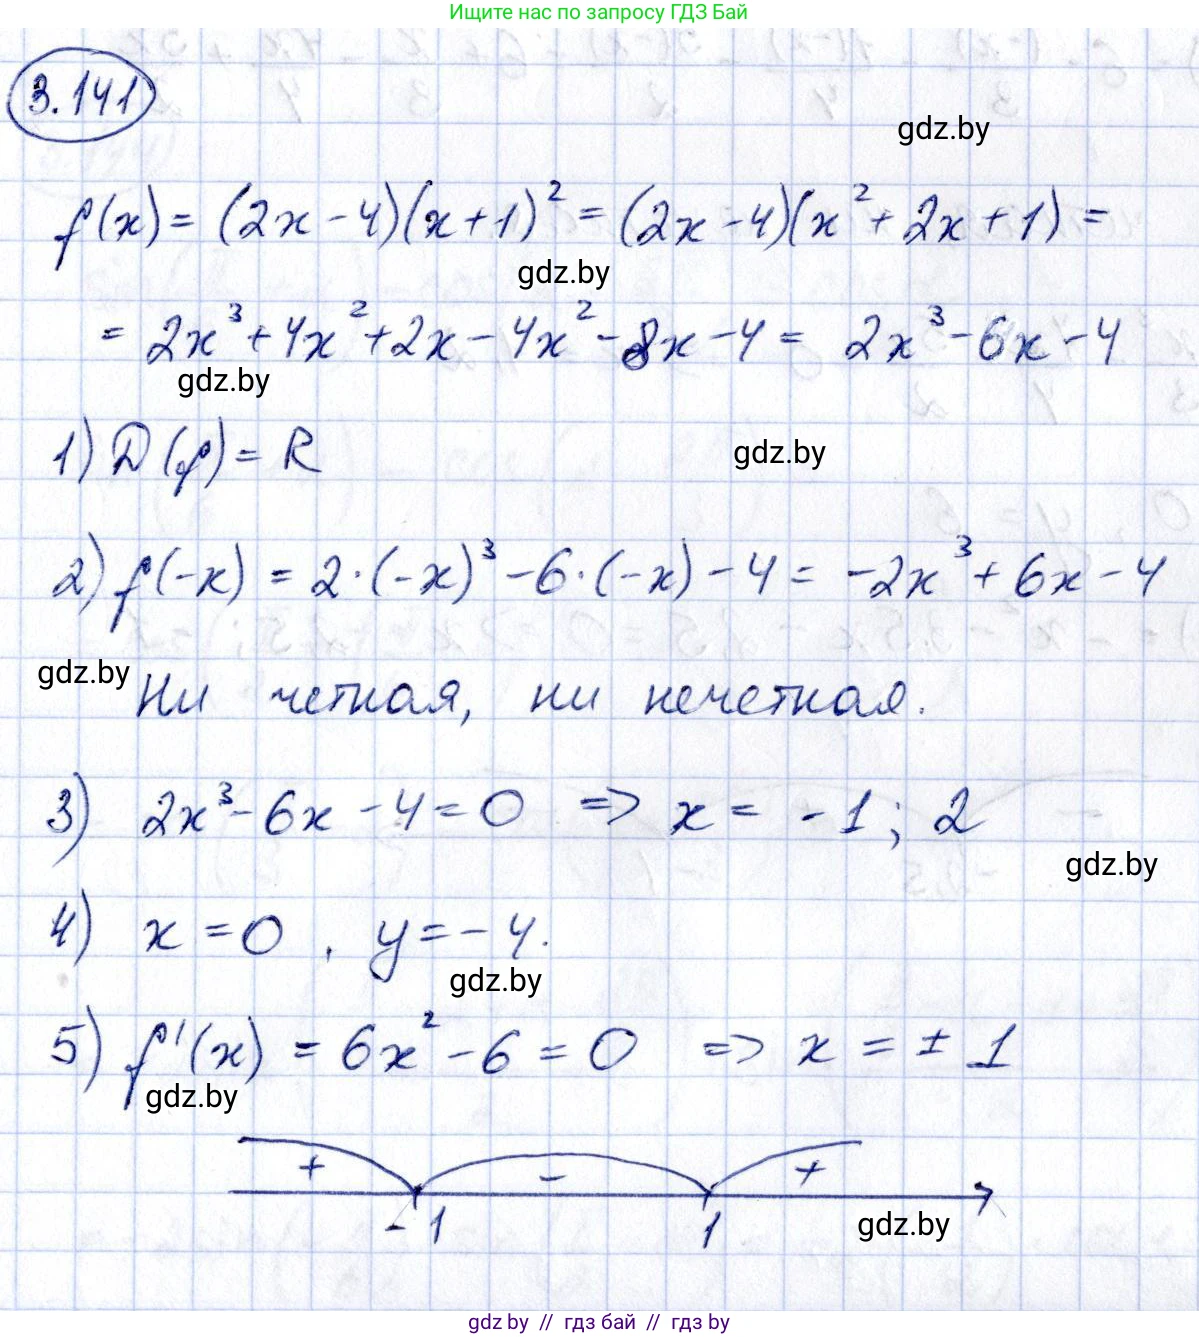 Ищите нас по запросу ГДЗ Бай
3.141
gdz.by
f(x) = (2x - 4)(x + 1)² = (2x - 4)(x² + 2x + 1) =
gdz.by
= 2x³ + 4x² + 2x - 4x² - 8x - 4 = 2x³ - 6x - 4
gdz.by
1) D(f) = R
gdz.by
2) f(-x) = 2·(-x)³ - 6·(-x) - 4 = -2x³ + 6x - 4
gdz.by
Ни четная, ни нечетная.
3) 2x³ - 6x - 4 = 0 => x = -1; 2
gdz.by
4) x = 0, y = -4.
gdz.by
5) f'(x) = 6x² - 6 = 0 => x = ± 1
gdz.by
+ - +
-1 1
gdz.by
gdz.by // гдз бай // gdz by